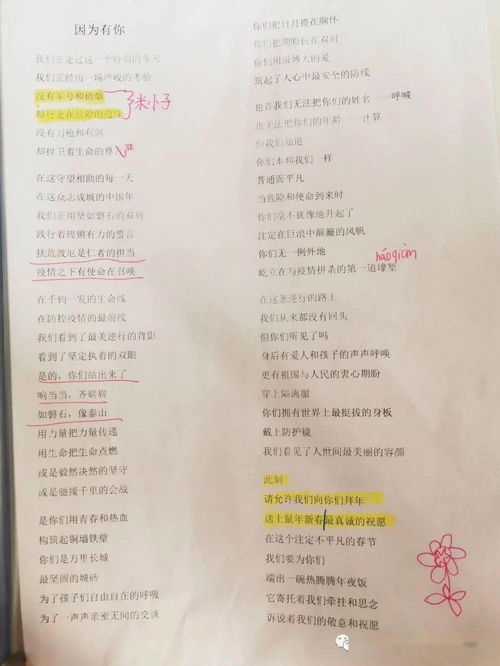 因为有你
我们正走过这一个特别的冬天
我们正经历一场严峻的考验
没有军号和硝烟
却行走在危险的边缘
米小子
没有刀枪和利剑
却捍卫着生命的尊严
严
在这守望相助的每一天
在这众志成城的中国年
我们正用坚如磐石的双肩
践行着铿锵有力的誓言
扶危渡厄是仁者的担当
疫情之下有使命在召唤
在千钧一发的生命线
在防控疫情的最前线
我们看到了最美逆行的背影
看到了坚定执着的双眼
是的，你们站出来了
响当当，齐崭崭
如磐石，像泰山
用力量把力量传递
用生命把生命点燃
或是毅然决然的坚守
或是驰援千里的会战
是你们用青春和热血
构筑起铜墙铁壁
你们是万里长城
最坚固的城砖
为了孩子们自由自在的呼吸
为了一声声亲密无间的交谈
你们把日月揽在胸怀
你们把期盼扛在双肩
你们用最博大的爱
筑起了人心中最安全的防线
也许我们无法把你们的姓名一一呼喊
也无法把你们的年龄一一计算
但我们知道
你们本和我们一样
普通而平凡
当危险和使命到来时
你们毫不犹豫地升起了
注定在巨浪中颠簸的风帆
你们无一例外地
háoqiàn
屹立在与疫情拼杀的第一道壕堑
在这条逆行的路上
我们从来都没有回头
但你们听见了吗
身后有爱人和孩子的声声呼唤
更有祖国与人民的衷心期盼
穿上隔离服
你们拥有世界上最挺拔的身板
戴上防护镜
我们看见了人世间最美丽的容颜
此刻
请允许我们向你们拜年
送上鼠年新春最真诚的祝愿
在这个注定不平凡的春节
我们要为你们
端出一碗热腾腾年夜饭
它寄托着我们牵挂和思念
诉说着我们的敬意和祝愿